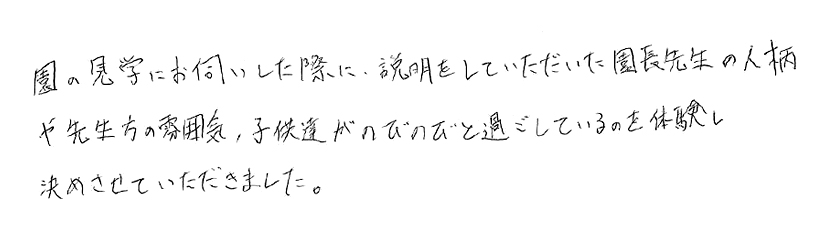 園の見学にお伺いした際に、説明をしていただいた園長先生の人柄
や先生方の雰囲気,子供達がのびのびと過ごしているのを体験し
決めさせていただきました。